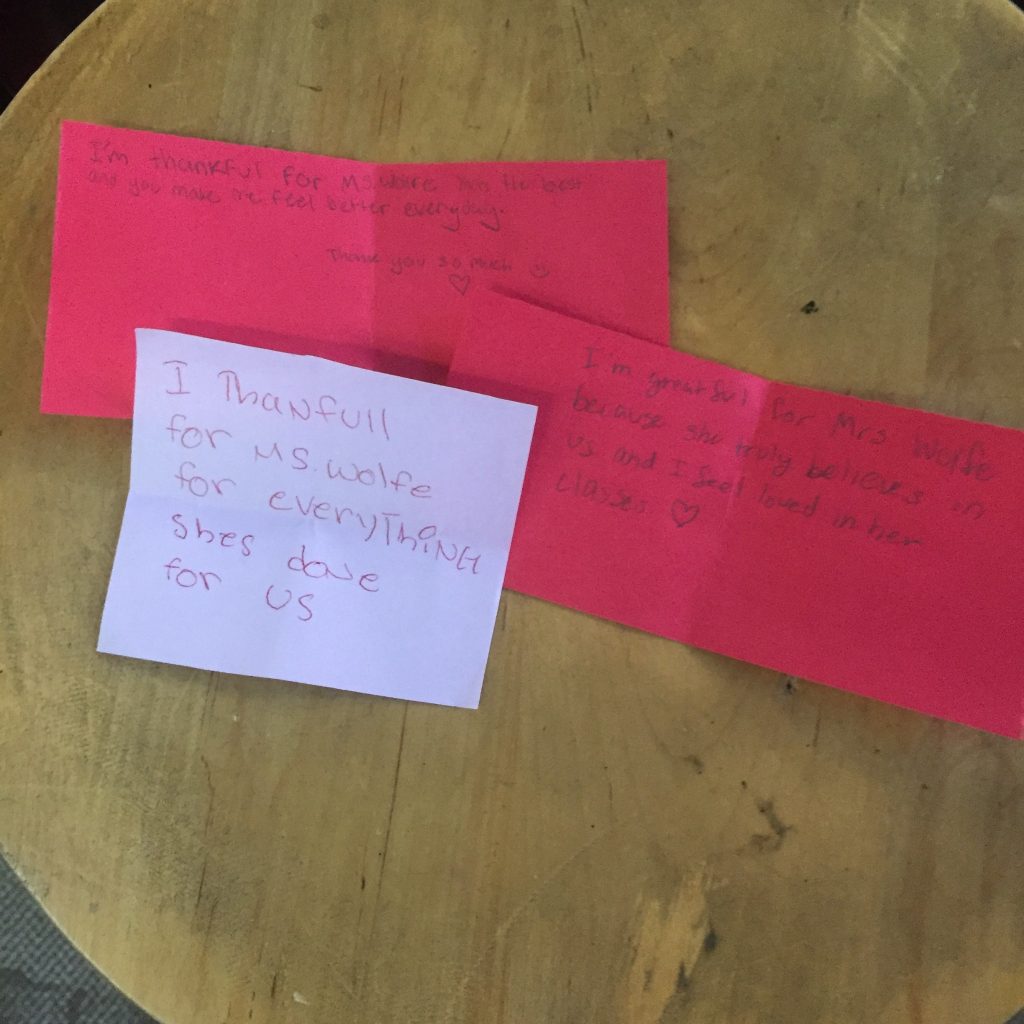 I'm thankful for Ms. Wolfe the best
and you make me feel better everyday.
Thank you so much
I'm greatful for Mrs. Wolfe
because she truly believes in
us and I feel loved in her
classes
I Thanfull
for MS. wolfe
for everyThiNG
shes done
for us